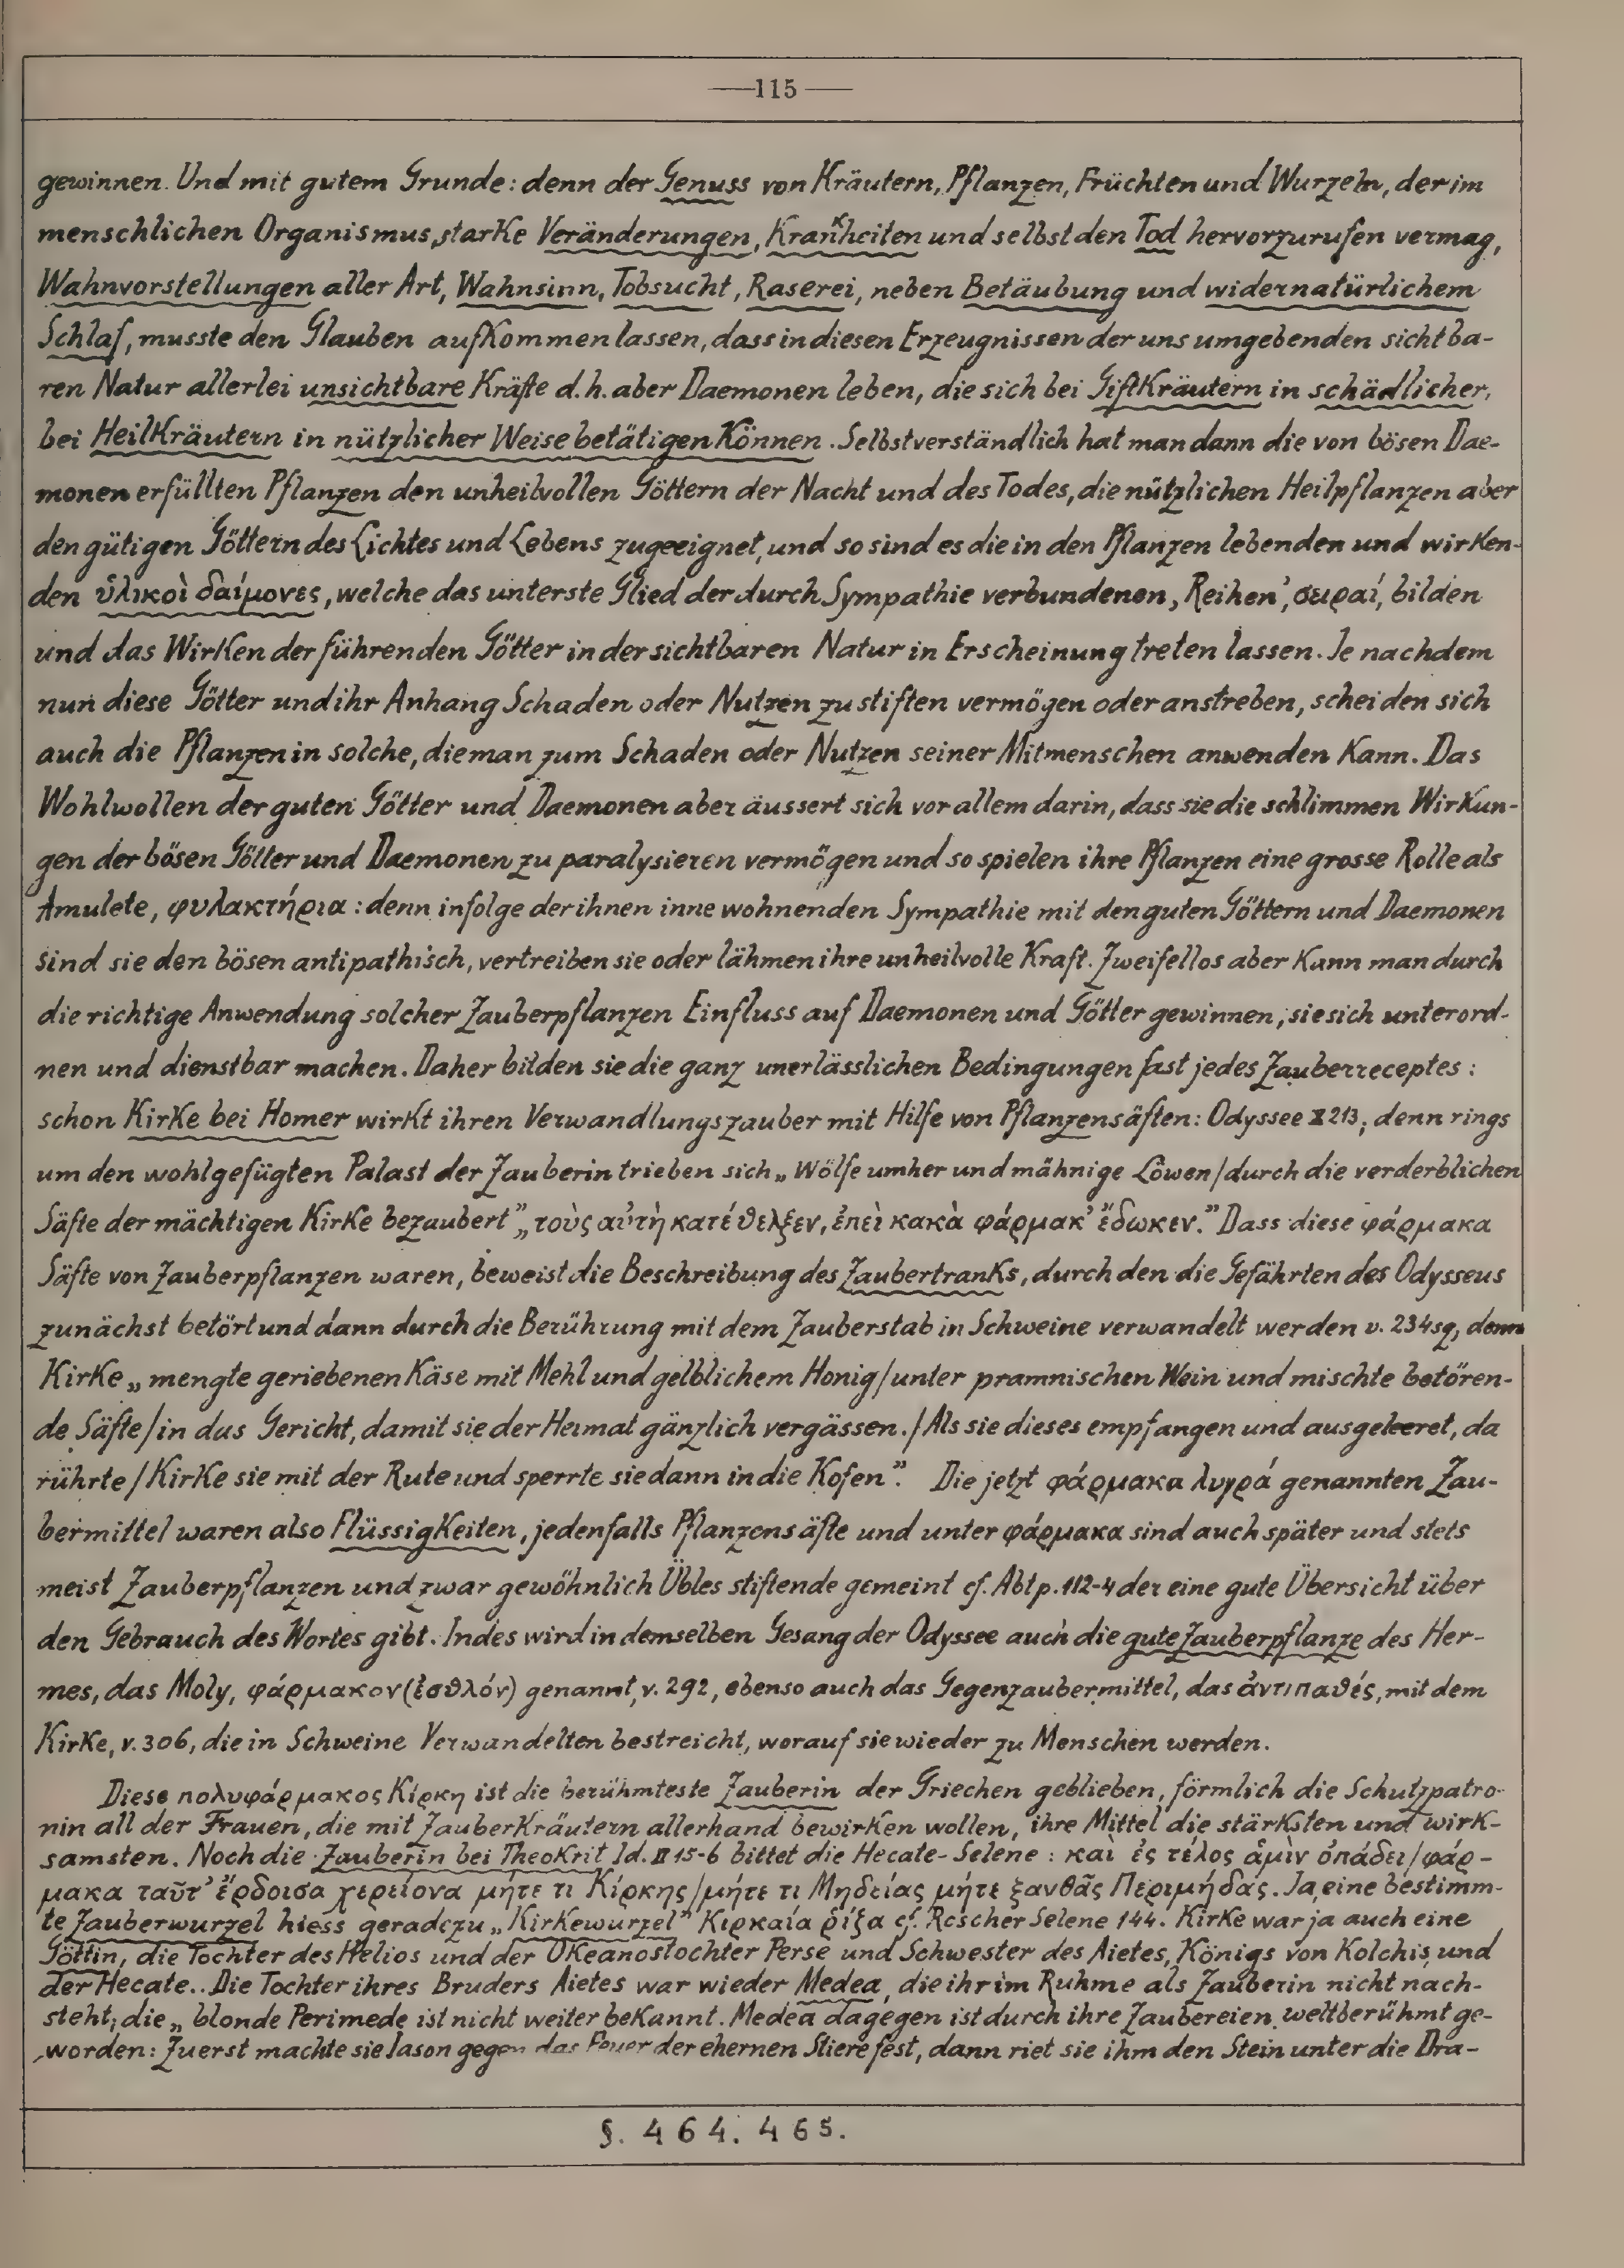 —115—
gewinnen. Und mit gutem Grunde: denn der Genuss von Kräutern, Pflanzen, Früchten und Wurzeln, der im
menschlichen Organismus, starke Veränderungen, Krankheiten und selbst den Tod hervorzurufen vermag,
Wahnvorstellungen aller Art, Wahnsinn, Tobsucht, Raserei, neben Betäubung und widernatürlichem
Schlaf, musste den Glauben aufkommen lassen, dass in diesen Erzeugnissen der uns umgebenden sichtba-
ren Natur allerlei unsichtbare Kräfte d.h. aber Daemonen leben, die sich bei Giftkräutern in schädlicher,
bei Heilkräutern in nützlicher Weise betätigen können. Selbstverständlich hat man dann die von bösen Dae-
monen erfüllten Pflanzen den unheilvollen Göttern der Nacht und des Todes, die nützlichen Heilpflanzen aber
den gütigen Göttern des Lichtes und Lebens zugeeignet, und so sind es die in den Pflanzen lebenden und wirken-
den ὑλικοὶ δαίμονες, welche das unterste Glied der durch Sympathie verbundenen, Reihen', σειραί, bilden
und das Wirken der führenden Götter in der sichtbaren Natur in Erscheinung treten lassen. Je nachdem
nun diese Götter und ihr Anhang Schaden oder Nutzen zu stiften vermögen oder anstreben, scheiden sich
auch die Pflanzen in solche, die man zum Schaden oder Nutzen seiner Mitmenschen anwenden kann. Das
Wohlwollen der guten Götter und Daemonen aber äussert sich vor allem darin, dass sie die schlimmen Wirkun-
gen der bösen Götter und Daemonen zu paralysieren vermögen und so spielen ihre Pflanzen eine grosse Rolle als
Amulete, φυλακτήρια: denn infolge der ihnen inne wohnenden Sympathie mit den guten Göttern und Daemonen
sind sie den bösen antipathisch, vertreiben sie oder lähmen ihre unheilvolle Kraft. Zweifellos aber kann man durch
die richtige Anwendung solcher Zauberpflanzen Einfluss auf Daemonen und Götter gewinnen, sie sich unterord-
nen und dienstbar machen. Daher bilden sie die ganz unerlässlichen Bedingungen fast jedes Zauberreceptes:
schon Kirke bei Homer wirkt ihren Verwandlungszauber mit Hilfe von Pflanzensäften: Odyssee X 213; denn rings
um den wohlgefügten Palast der Zauberin trieben sich „Wölfe umher und mähnige Löwen/durch die verderblichen
Säfte der mächtigen Kirke bezaubert" „τοὺς αὐτὴ κατέθελξεν, ἐπεὶ κακὰ φάρμακ' ἔδωκεν." Dass diese φάρμακα
Säfte von Zauberpflanzen waren, beweist die Beschreibung des Zaubertranks, durch den die Gefährten des Odysseus
zunächst betört und dann durch die Berührung mit dem Zauberstab in Schweine verwandelt werden v. 234sq, denn
Kirke „mengte geriebenen Käse mit Mehl und gelblichem Honig/unter pramnischen Wein und mischte betören-
de Säfte/in das Gericht, damit sie der Heimat gänzlich vergässen./Als sie dieses empfangen und ausgeleeret, da
rührte/Kirke sie mit der Rute und sperrte sie dann in die Kofen". Die jetzt φάρμακα λυγρά genannten Zau-
bermittel waren also Flüssigkeiten, jedenfalls Pflanzensäfte und unter φάρμακα sind auch später und stets
meist Zauberpflanzen und zwar gewöhnlich Übles stiftende gemeint cf. Abt p. 112-4 der eine gute Übersicht über
den Gebrauch des Wortes gibt. Indes wird in demselben Gesang der Odyssee auch die gute Zauberpflanze des Her-
mes, das Moly, φάρμακον (ἐσθλόν) genannt, v. 292, ebenso auch das Gegenzaubermittel, das ἀντιπαθές, mit dem
Kirke, v. 306, die in Schweine Verwandelten bestreicht, worauf sie wieder zu Menschen werden.
Diese πολυφάρμακος Κίρκη ist die berühmteste Zauberin der Griechen geblieben, förmlich die Schutzpatro-
nin all der Frauen, die mit Zauberkräutern allerhand bewirken wollen, ihre Mittel die stärksten und wirk-
samsten. Noch die Zauberin bei Theokrit Id. II 15-6 bittet die Hecate-Selene: καὶ ἐς τέλος ἁμὶν ὀπάδει/φάρ-
μακα ταῦτ' ἔρδοισα χερείονα μήτε τι Κίρκης/μήτε τι Μηδείας μήτε ξανθᾶς Περιμήδας. Ja, eine bestimm-
te Zauberwurzel hiess geradezu „Kirkewurzel" Κιρκαία ῥίζα cf. Roscher Selene 144. Kirke war ja auch eine
Göttin, die Tochter des Helios und der Okeanostochter Perse und Schwester des Aietes, Königs von Kolchis, und
der Hecate.. Die Tochter ihres Bruders Aietes war wieder Medea, die ihr im Ruhme als Zauberin nicht nach-
steht; die „blonde Perimede ist nicht weiter bekannt. Medea dagegen ist durch ihre Zaubereien weltberühmt ge-
worden: Zuerst machte sie Iason gegen das Feuer der ehernen Stiere fest, dann riet sie ihm den Stein unter die Dra-
§. 464. 465.